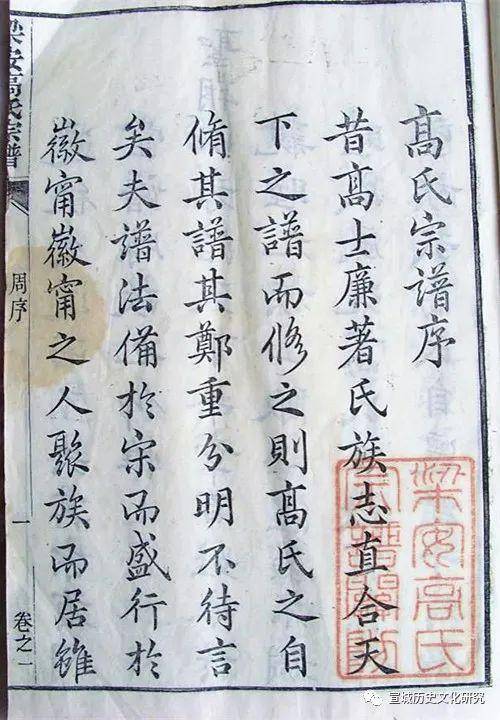 髙氏宗譜序
昔髙士廉著氏族志直合天
下之譜而修之則髙氏之自
脩其譜其鄭重分明不待言
矣夫譜法備於宋而盛行於
徽甯徽甯之人聚族而居雖
梁安高氏宗譜
周序
一
卷之一
梁安高氏
宣城历史文化研究